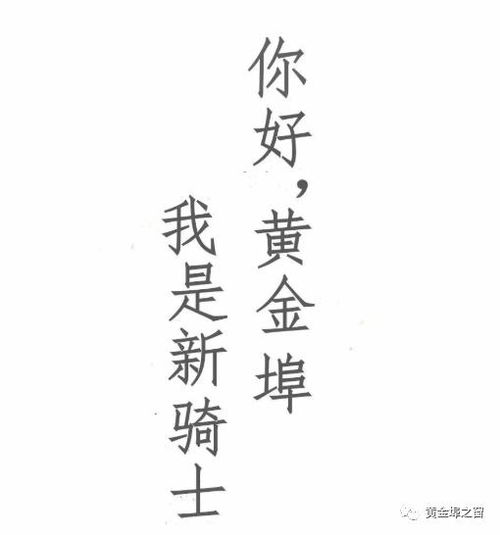 你好,黄金埠
我是新骑士
黄金埠之窗